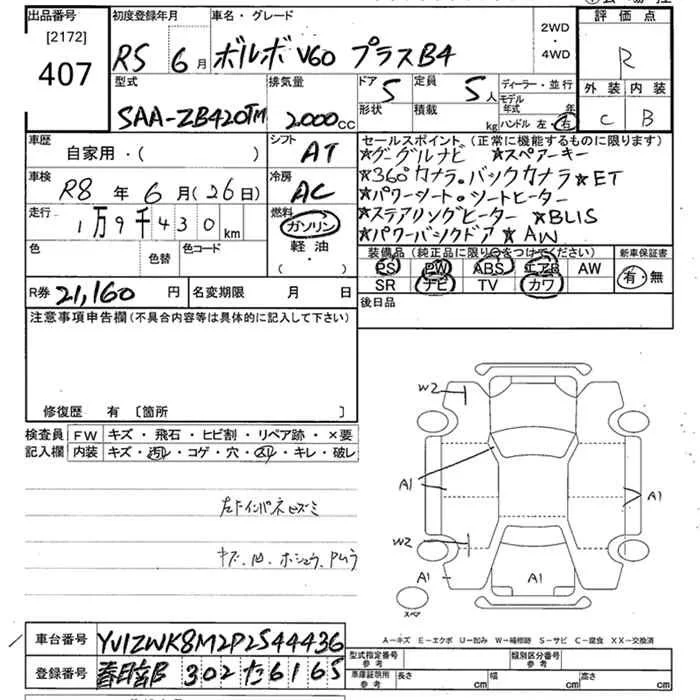 出品番号 初度登録年月 車名・グレード 2WD・4WD 評価点
[2172]
407
R5 6月 ボルボ V60 プラスB4 R
型式 排気量 ドア 5 定員 5人 ディーラー・並行 外装 内装
SAA-ZB420TM 2000cc 形状 積載 kg モデル年式 年 ハンドル 左・右 C B
車歴 シフト セールスポイント(正常に機能するものに限ります)
自家用・( ) AT ★グーグルナビ ★スペアーキー
車検 冷房 ★360°カメラ。バックカメラ ★ET
R8年6月(26日) AC ★パワーシート。シートヒーター
走行 燃料 ★ステアリングヒーター ★BLIS
1万9千430km ガソリン ★パワーバックドア ★AW
色 色替 色コード 軽油・( ・ ) 装備品(純正品に限り○をつけてください) 新車保証書
PS PW ABS エアB AW 有・無
R券 21,160円 名変期限 月 日 SR ナビ TV カワ
注意事項申告欄(不具合内容等は具体的に記入して下さい) 後日品
修復歴 有 [箇所 ]
検査員 FW キズ・飛石・ヒビ割・リペア跡・×要
記入欄 内装 キズ・汚レ・コゲ・穴・スレ・キレ・破レ
W2
A1
A1
W2
A1
A1
スペア
キズ、凹、ホシュウ、Pムラ
A-キズ E-エクボ U-凹み W-補修跡 S-サビ C-腐食 XX-交換済
車台番号 YV1ZWK8M2P2544436
登録番号 春日部 302 た 6165
型式指定番号 参考 類別区分番号 参考
車庫証明所用 参考 長さ cm 幅 cm 高さ cm